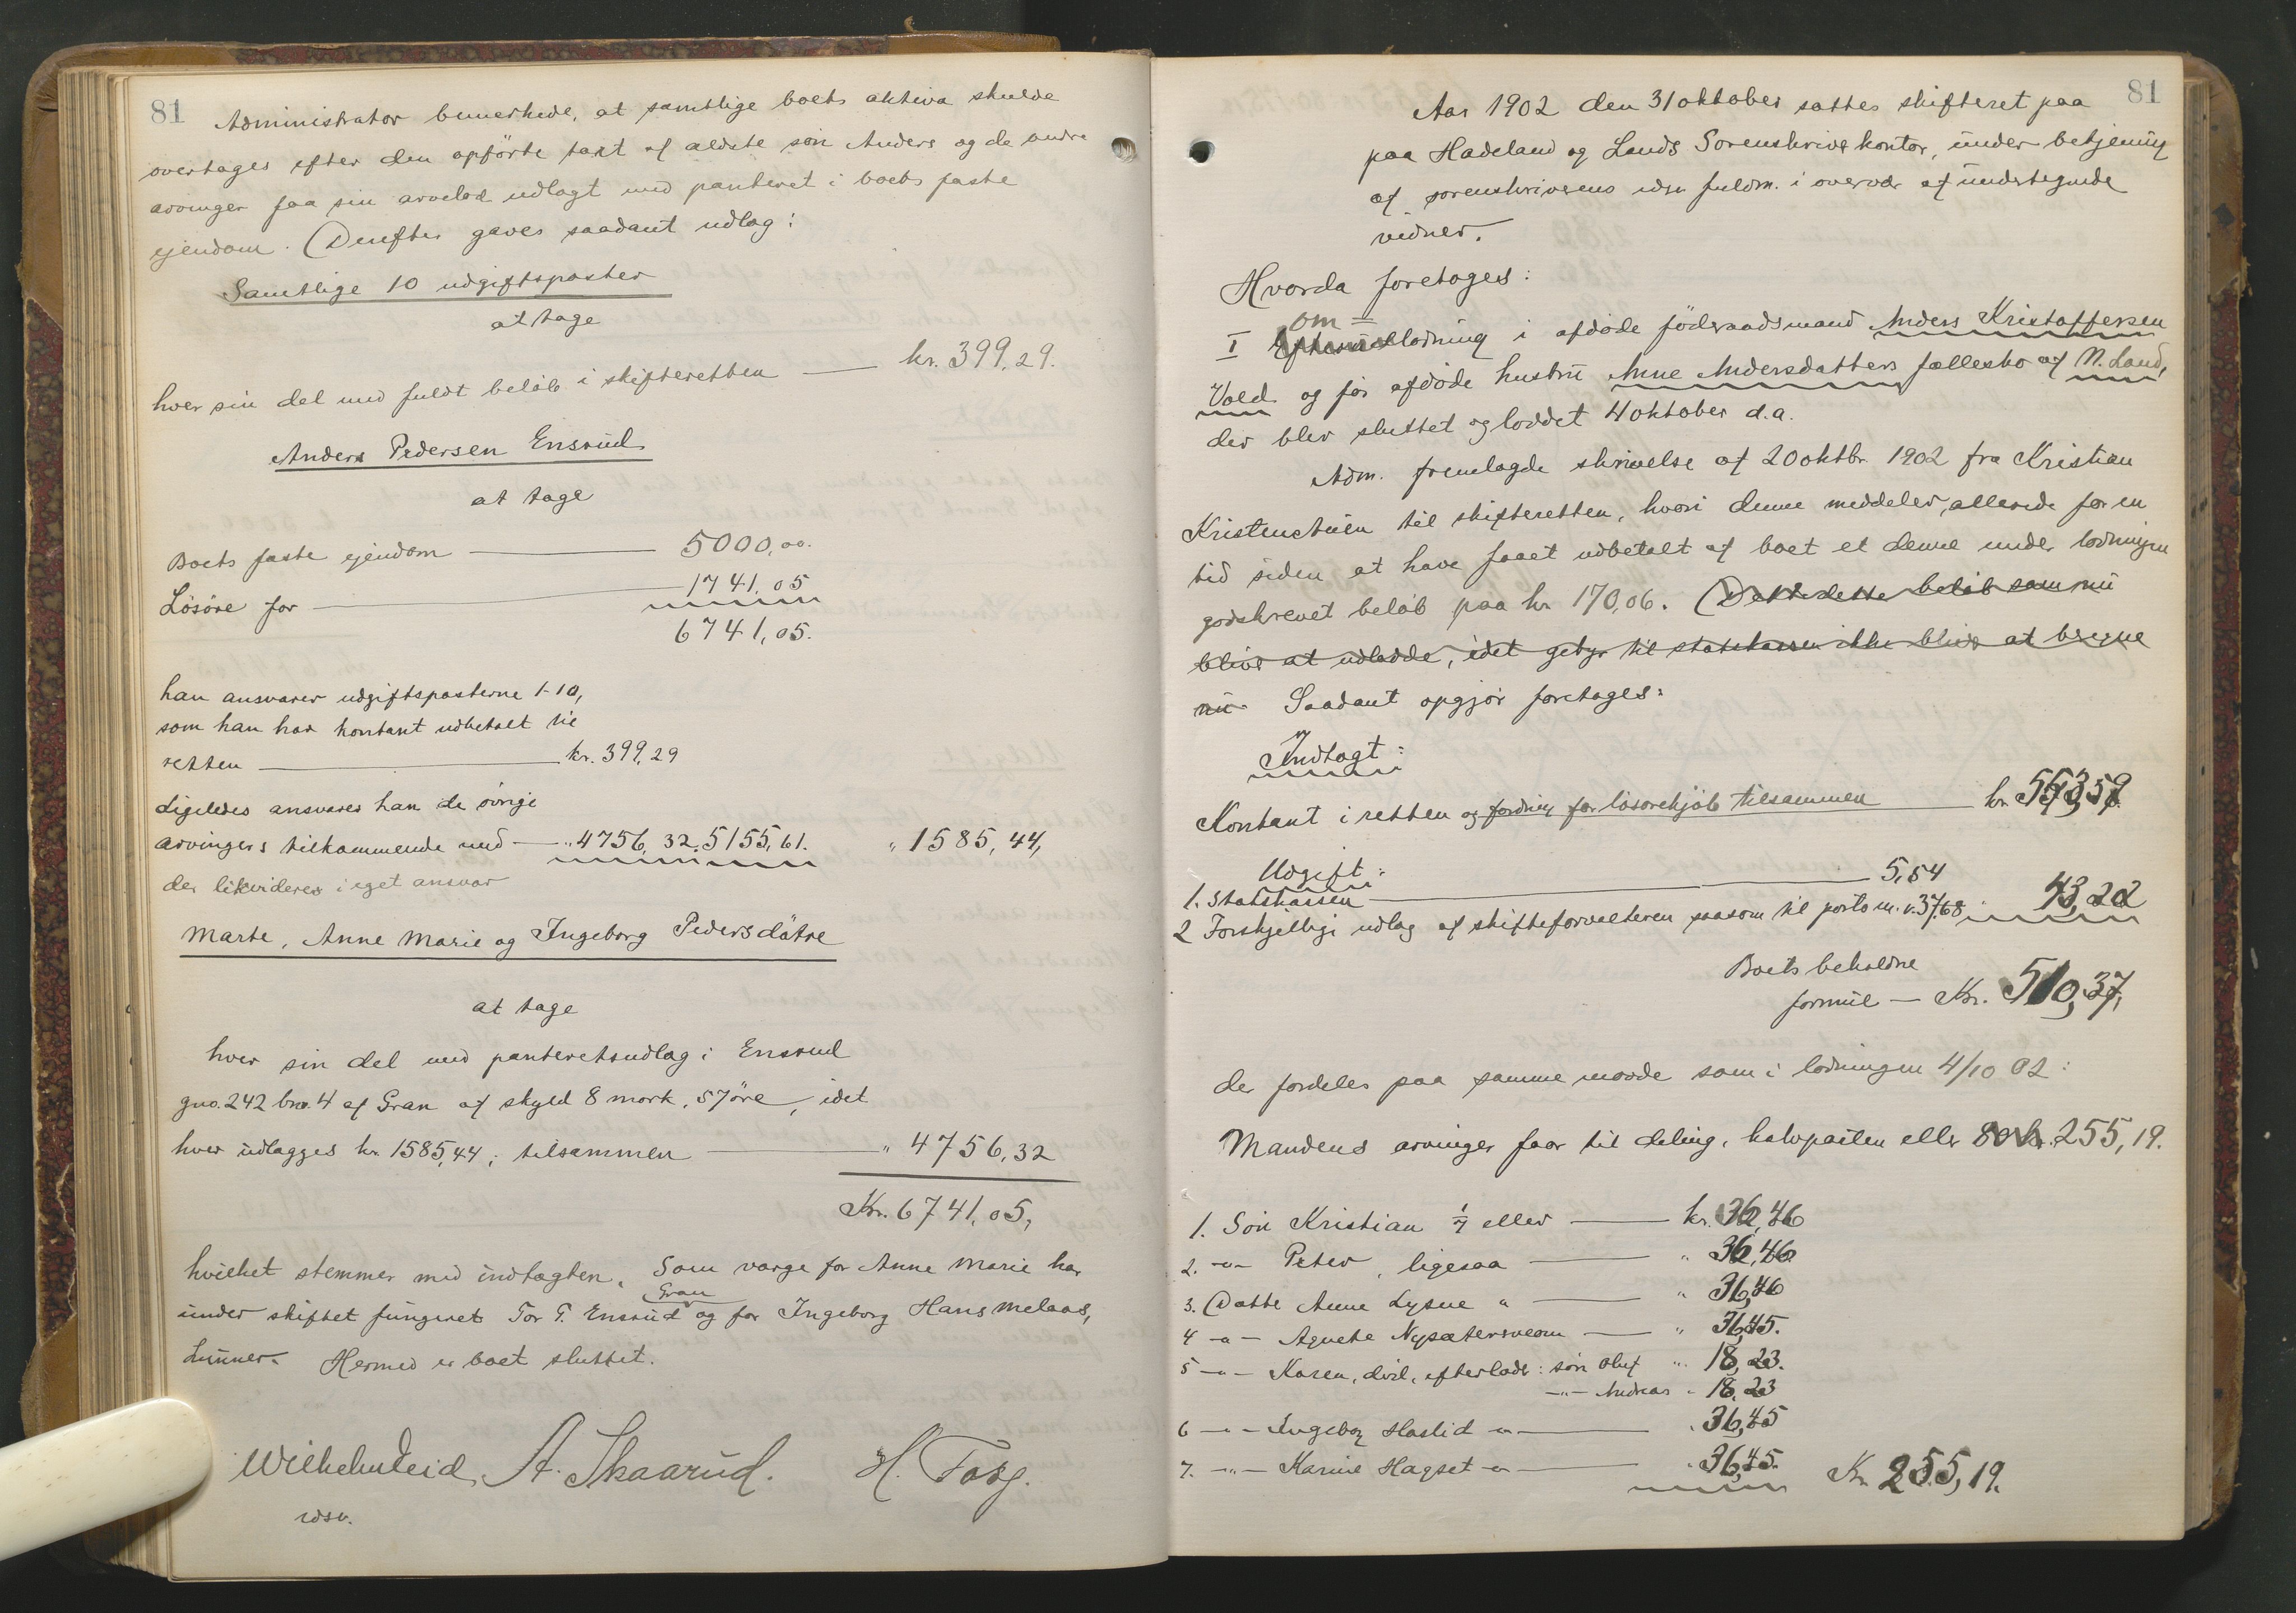 81
Administrator bemerkede, at samtlige boets aktiva skulde
overtages efter den opförte taxt af ældste sön Anders og de andre
arvinger faa sin arvelod udlagt med panteret i boets faste
ejendom. Derefter gaves saadant udlæg:
Samtlige 10 udgiftsposter
at tage
hver sin del med fuldt belöb i skifteretten — kr. 399,29.
Anders Pedersen Ensrud
at tage
Boets faste ejendom — 5000,00.
Lösöre for — 1741,05
6741,05.
han ansvarer udgiftsposterne 1-10,
som han har kontant udbetalt til
retten — kr. 399,29
Ligeledes ansvares han de övrige
arvingers tilkommende med — " 4756,32. 5155,61. " 1585,44,
der likvideres i eget ansvar
Marte, Anne Marie og Ingeborg Pedersdötre
at tage
hver sin del med panteretsudlæg i Ensrud
gno. 242 bno. 4 af Gran af skyld 8 mark, 57 öre, idet
hver udlægges kr. 1585,44; tilsammen — " 4756,32
Kr. 6741,05,
hvilket stemmer med indtægten. Som værge for Anne Marie har
under skiftet fungeret Tor P. Ensrud Gran og for Ingeborg Hans Melaas,
Lunner. Hermed er boet sluttet.
Wilhelm Leid A. Skaarud. H. Forg.
cdsv.
81
Aar 1902 den 31 oktober sattes skifteret paa
paa Hadeland og Lands Sorenskriverkontor, under betjening
af sorenskriverens edsv fuldm. i overvær af undertegnede
vidner.
Hvorda foretoges:
I om = lodning i afdöde föderaadsmand Anders Kristoffersen
Vold og för afdöde hustru Anne Andersdatters fællesbo af N. Land,
der blev sluttet og loddet 4 oktober d.a.
Adm. fremlagde skrivelse af 20 oktbr. 1902 fra Kristian
Kristenstuen til skifteretten, hvori denne meddeler, allerede for en
tid siden at have faaet udbetalt af boet et denne under lodningen
godskrevet belöb paa kr 170,06. Det dette belöb som nu
bliver at udlodde, idet gebyr til statskassen ikke bliver at beregne
nu. Saadant opgjör foretoges:
Indtægt:
Kontant i retten og fordring for lösörekjöb tilsammen — kr. 553,59.
Udgift:
1. Statskassen — 5,54
2 Forskjellige udlæg af skifteforvalteren saasom til porto m.v. 37,68 " 43,22
Boets beholdne
formue — Kr. 510,37,
der fordeles paa samme maade som i lodningen 4/10 02:
Mandens arvinger faar til deling, halvparten eller kr. 255,19.
1. Sön Kristian 1/7 eller — kr. 36,46
2. -"- Peter, ligesaa — " 36,46
3. Datte Anne Lysne " — " 36,46
4 -"- Agnethe Nysætersveen — " 36,45.
5 -"- Karen, död, efterladt: sön Oluf " 18,23.
-"- Andreas " 18,23
6 -"- Ingeborg Haslid -"- — " 36,45
7. -"- Karine Hagset -"- — " 36,45. Kr. 255,19.